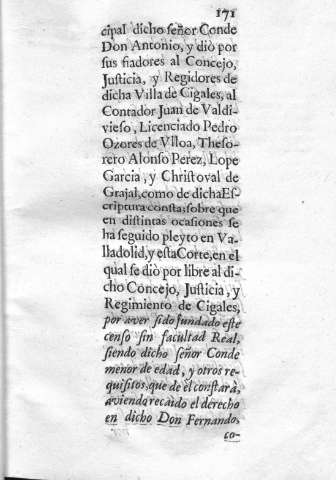 171
cipal dicho señor Conde
Don Antonio, y diò por
sus fiadores al Concejo,
Justicia, y Regidores de
dicha Villa de Cigales, al
Contador Juan de Valdi-
vieso, Licenciado Pedro
Ozores de Vlloa, Theso-
rero Alonso Perez, Lope
Garcia, y Christoval de
Grajal, como de dicha Es-
criptura consta; sobre que
en distintas ocasiones se
ha seguido pleyto en Va-
lladolid, y esta Corte, en el
qual se diò por libre al di-
cho Concejo, Justicia, y
Regimiento de Cigales,
por aver sido fundado este
censo sin facultad Real,
siendo dicho señor Conde
menor de edad, y otros re-
quisitos, que de èl constarà,
aviendo recaido el derecho
en dicho Don Fernando,
co-